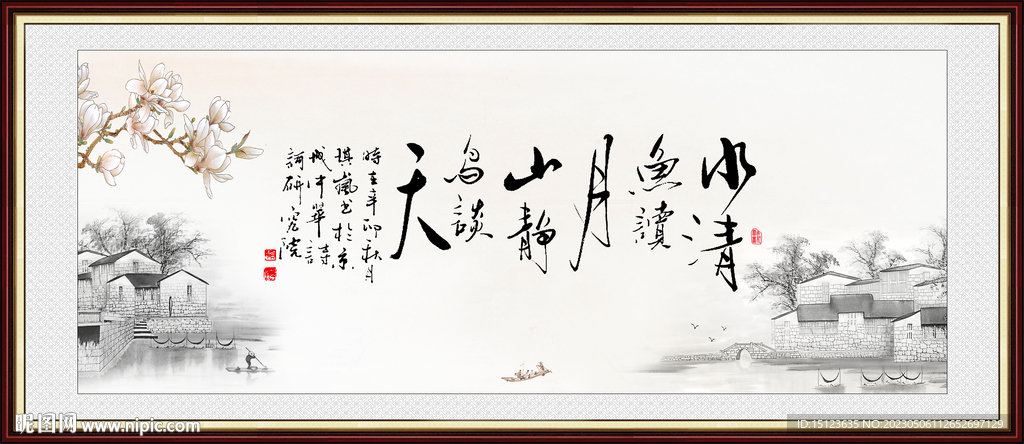 水清
魚讀
月
山靜
鳥談
天
時在辛卯秋月
琪嵐书於京
城中華詩
詞研究院
昵图网 www.nipic.com
ID:15123635 NO:20230506112652697129